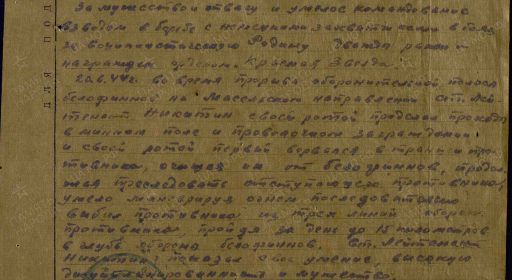 За мужество отвагу и умелое командование
взводом в борьбе с немецкими захватчиками в боях
за социалистическую Родину дважды ранен
награжден орденом "Красная Звезда".
во время прорыва оборонительной полосы
белофиннов на Масельском направлении ст. Лей
тенант Никитин своей ротой проделал проходы
в минном поле и проволочном заграждении
и своей ротой первый ворвался в траншеи про
тивника, очищая их от белофиннов, продол
жая преследовать отступающего противника,
умело маневрируя огнем последовательно
выбил противника из трех линий обороны
противника, пройдя за день до 15 километров
в глубь обороны белофиннов. Ст. Лейтенант
Никитин показал свое умение, высокую
дисциплинированность и мужество.
ДЛЯ ПОД